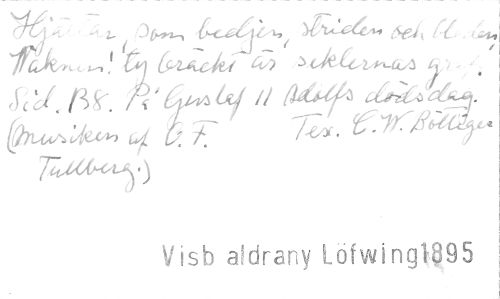 Hjältar, som bedjen, striden och bleden,
Waknen! ty bräckt är seklernas graf.
Sid. 138. På Gustaf II Adolfs dödsdag.
(Musiken af O. F. Tex. C. W. Böttiger
Tullberg.)
Visb aldrany Löfwing1895